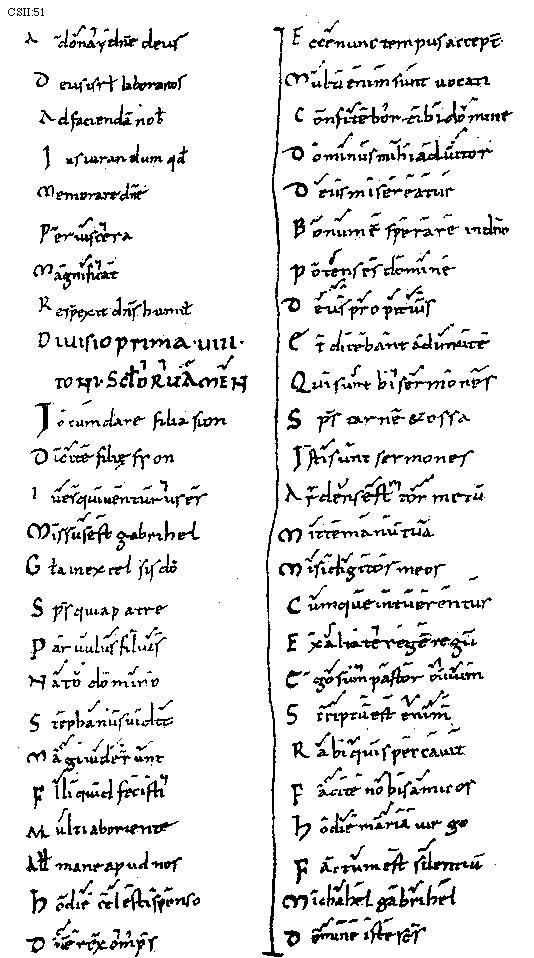 CSII:51
Adonay dn̄e deus
Deus isrl laborantes
Ad faciendā nob
Iusiurandum qd
Memorare dn̄e
Per viscera
Magnificat
Respexit dn̄s humil
Divisio prima · viiii ·
toni · Sclorum amen
Iocundare filia sion
Dicite filię syon
Iuvenes
Missus est gabrihel
Gla in excelsis dō
Sps qui a patre
Parvulus filius
Nato domino
Stephanus vidit
Magi viderunt
Si quid fecisti
Multi ab oriente
mane apud nos
Hodie celesti sponso
Dicite
Ecce nunc tempus accept
Multi enim sunt vocati
Confitebor tibi domine
Dominus mihi adiutor
Deus misereatur
Bonum ē sperare in dnō
Potens es domine
Deus propitius
Et dicebant ad invicē
Qui sunt hi sermones
Sps carnē & ossa
Isti sunt sermones
Ardens est cor meū
Mitte manū tuā
Misi digitos meos
Cumque intuerentur
Exaltate regē regū
Ego sum pastor ovium
Scriptū est enim
Rabi quis peccavit
Facite vobis amicos
Hodie maria virgo
Factum est silentiū
Michahel gabrihel
Domine iste